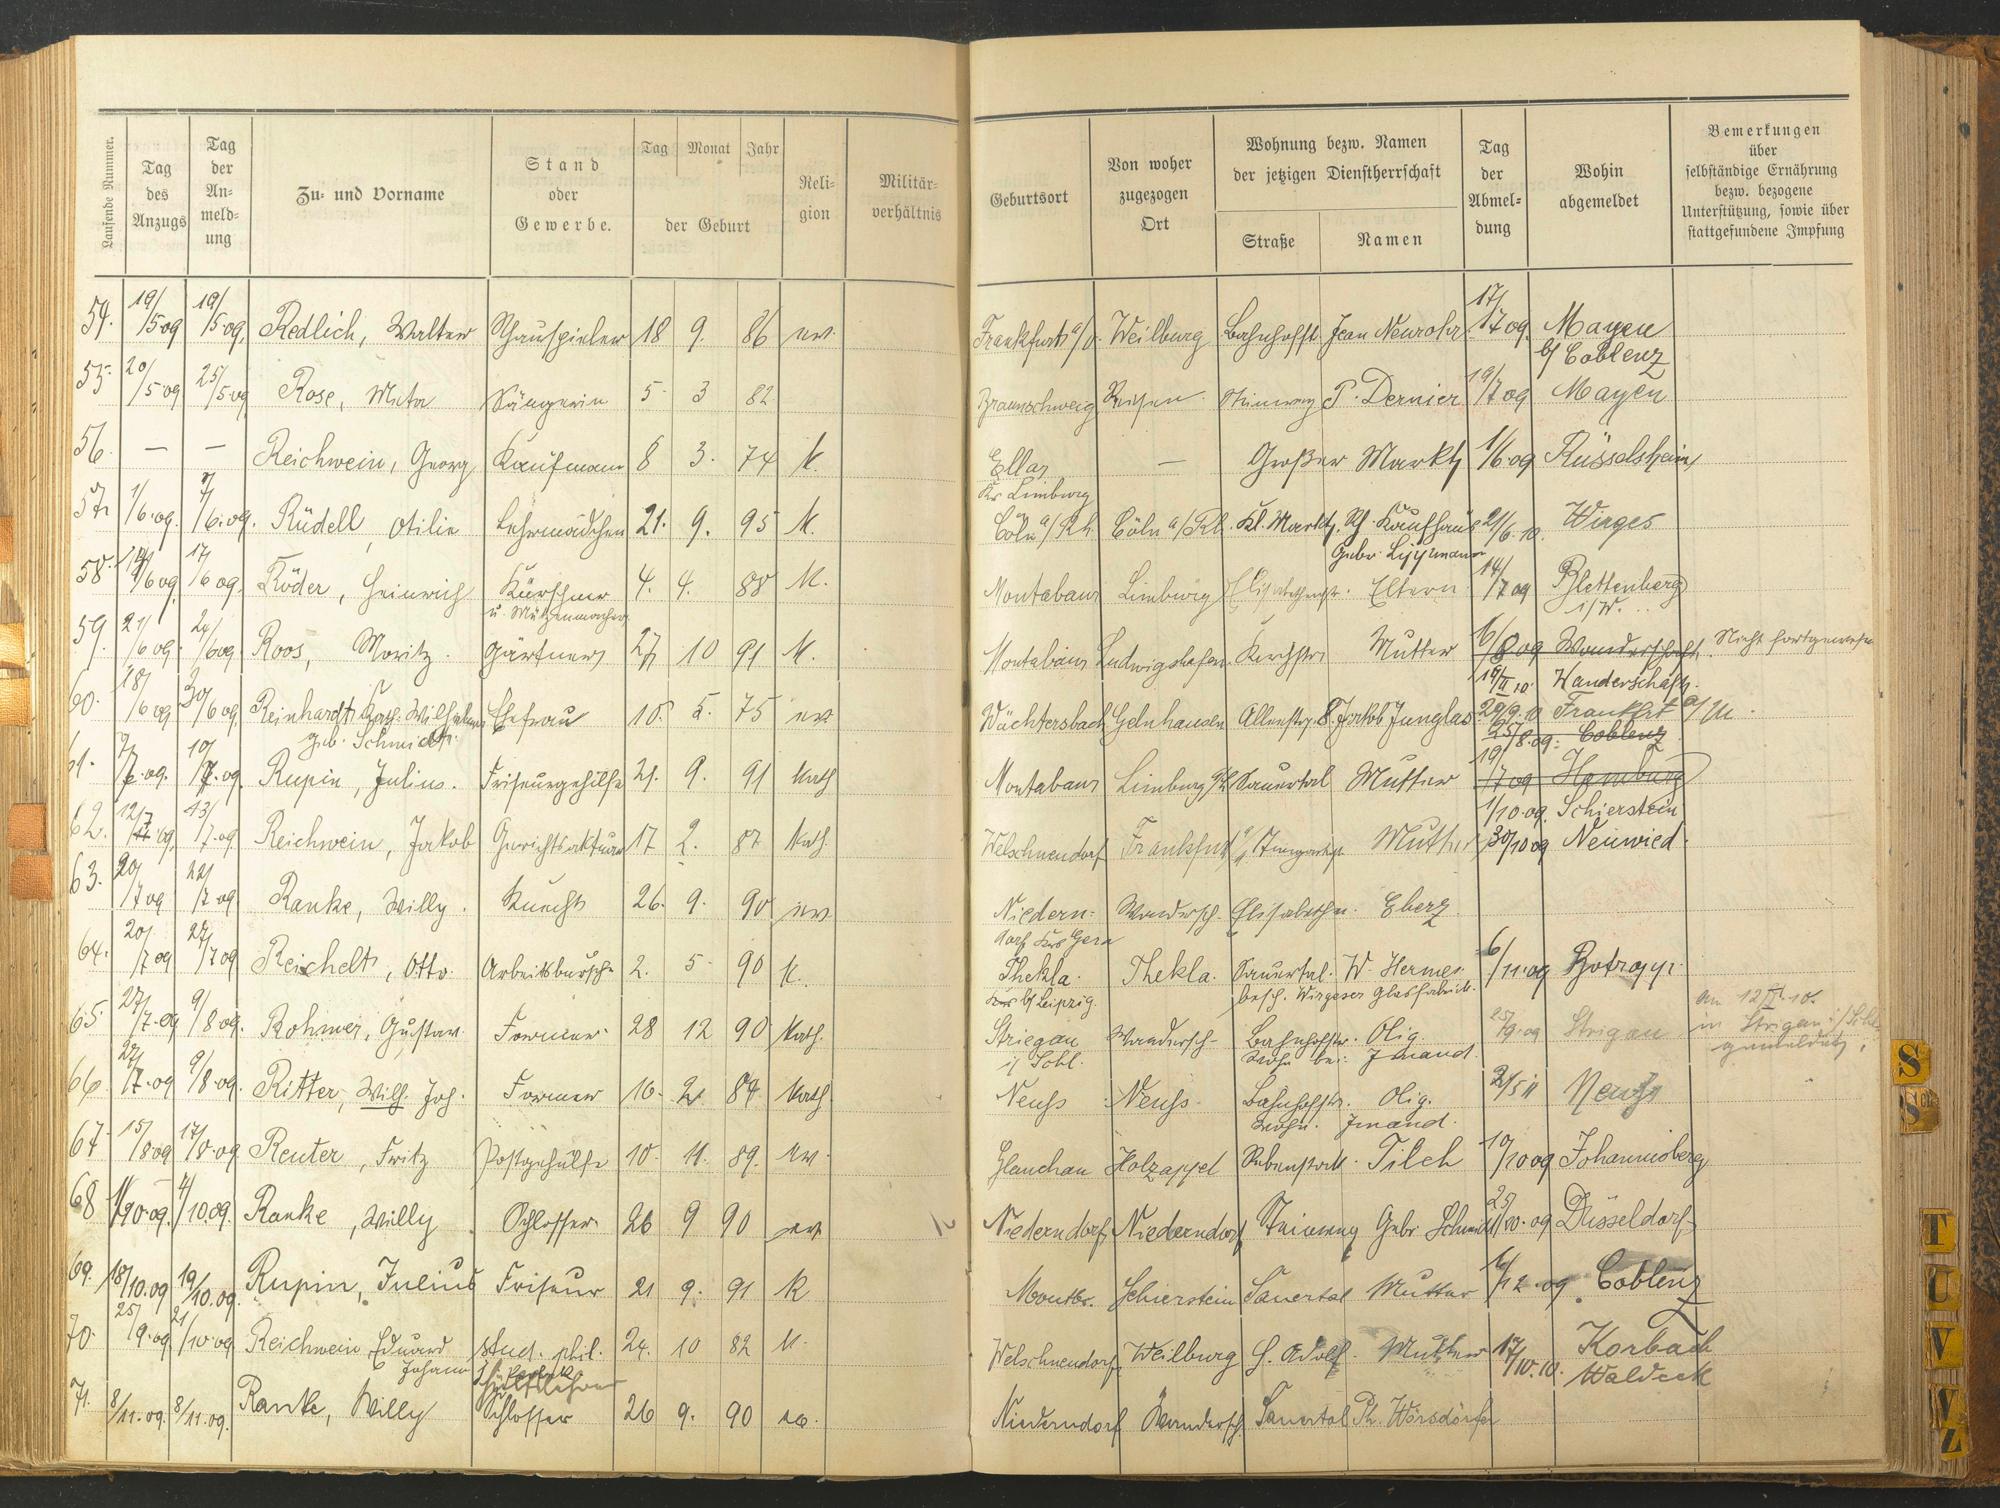 Laufende Nummer.
Tag des Anzugs
Tag der An- meld- ung
Zu- und Vorname
Stand oder Gewerbe.
Tag Monat Jahr
der Geburt
Reli- gion
Militär- verhältnis
Geburtsort
Von woher zugezogen Ort
Wohnung bezw. Namen
der jetzigen Dienstherrschaft
Straße Namen
Tag der Abmel- dung
Wohin abgemeldet
Bemerkungen
über
selbständige Ernährung
bezw. bezogene
Unterstützung, sowie über
stattgefundene Impfung
54. 19/5 09 19/5 09. Redlich, Walter Schauspieler 18 9. 86 ev. Frankfurt a/O. Weilburg Bahnhofst. Jean Neurohr 17/7 09. Mayen
b/ Coblenz
55. 20/5 09 25/5 09 Rose, Meta Sängerin 5 3 82 Braunschweig P. Dernier 19/7 09 Mayen
56. — — Reichwein, Georg Kaufmann 8 3. 74 K. Ellar — Großer Markt 1/6 09 Rüsselsheim
Kr. Limburg
57. 1/6.09. /6.09. Rüdell, Otilie Lehrmädchen 21. 9. 95 K. Cöln a/Rh. Cöln a/Rh. Kl. Markt. Sch. Kaufhaus 21/6.10. Wirges
Gebr. Lippmann
58. 14/6 09 17/6 09. Röder, Heinrich Kürschner 4. 4. 88 K. Montabaur Limburg Elisabethenstr. Eltern 14/7 09 Plettenberg
u. Mützenmacher i/W.
59. 21/6 09. 24/6 09 Roos, Moritz. Gärtner 27 10 91 K. Montabaur Ludwigshafen Kirchstr. Mutter 6/8 09 Wanderschaft. Nicht fortgewesen
19/II 10 Wanderschaft.
60. 18/6 09 30/6 09. Reinhardt Kath. Wilhelmine Ehefrau 10. 5. 75 ev. Wächtersbach Gelnhausen Allenstr. 8. Jakob Junglas 29/9.10 Frankfrt a/M.
geb. Schmidt. 25/8.09. Coblenz
61. 7/7.09. 10/7.09. Rupin, Julius. Friseurgehilfe 21. 9. 91 kath Montabaur Limburg a/L Sauertal Mutter 19/7 09 Hamburg
1/10.09. Schierstein
62. 12/7 09. 13/7.09. Reichwein, Jakob Gerichtsaktuar 17 2. 87 kath. Welschneudorf Frankfurt Mutter 30/10 09 Neuwied.
63. 20/7 09 22/7 09. Ranke, Willy. Knecht 26. 9. 90 ev Niedern- Wandersch. Elisabethn. Eberz
dorf Krs Gera
64. 20/7 09 27/7 09 Reichelt, Otto. Arbeitsbursche 2. 5 90 K. Thekla. Thekla. Sauertal. W. Hermes 6/11.09 Botropp.
Krs b/Leipzig. besch. Wirgeser Glasfabrik.
65 27/7.09 9/8 09. Rohmer, Gustav. Former 28 12 90 kath. Striegau Wandersch- Bahnhofstr. Olig 25/9.09 Strigau am 12 10.
i/ Schl. wohn. bei: Jmand. in Strigau i/Schl.
gemeldet.
66. 27/7.09 9/8.09. Ritter, Wilh. Joh. Former 16. 2. 84 kath Neuss Neuss. Bahnhofstr. Olig. 2/5 11 Neuss
wohn. Jmand.
67. 15/8 09 17/8.09 Reuter, Fritz Postgehülfe 10. 11. 89. ev. Glauchau Holzappel Rebenstock. Tilch 10/10 09 Johannisberg
68 1/10.09. 4/10.09. Ranke, Willy Schlosser 26 9 90 ev Niederndorf Niederndorf Steinweg Gebr Schmidt 25/10.09 Düsseldorf
69. 18/10.09 19/10.09. Rupin, Julius Friseur 21 9. 91 K Montbr. Schierstein Sauertal Mutter 6/12.09. Coblenz
70. 25/9.09 21/10.09 Reichwein, Eduard stud. phil. 24. 10 82 K. Welschneudorf Weilburg H. Adolf. Mutter 17/10.10. Korbach
Johann Waldeck
71. 8/11.09. 8/11.09. Ranke, Willy Schlosser 26 9. 90 ev. Niederndorf Wandersch. Sauertal Ph. Wörsdörfer
S
Sch
S
T
U
V
W
Z